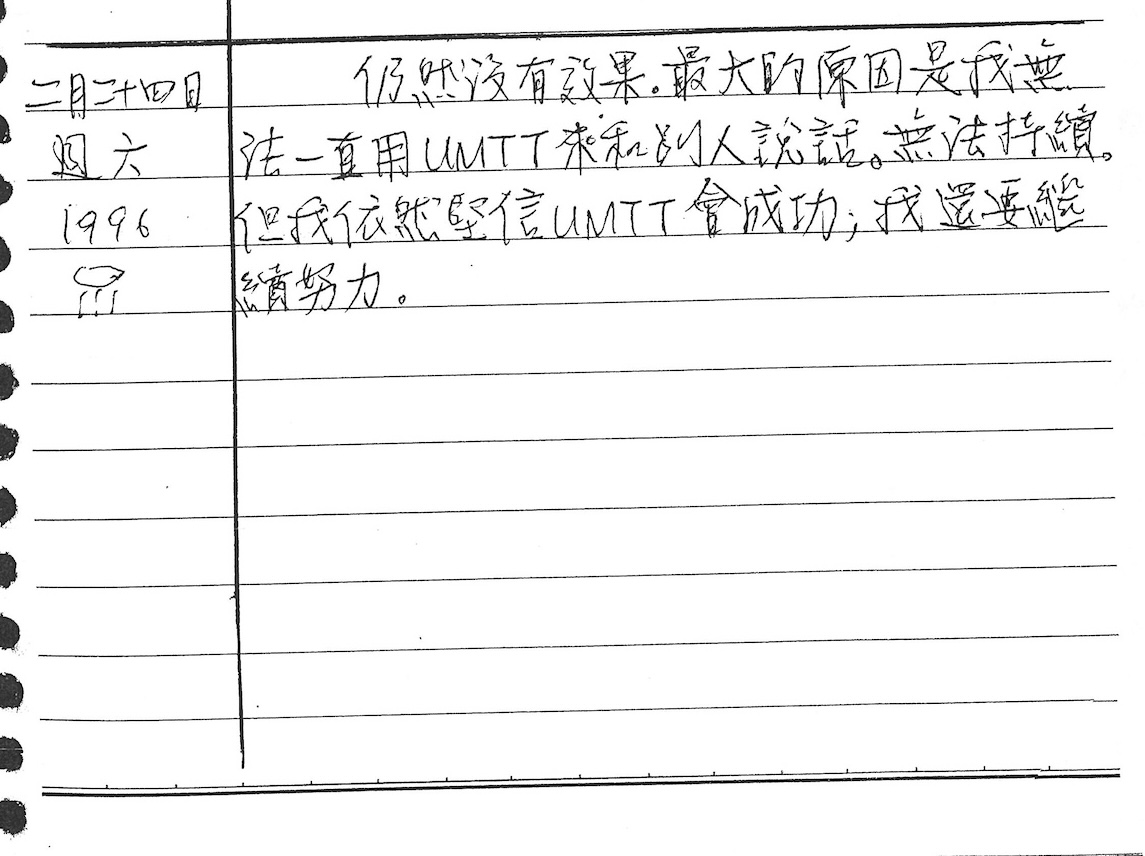 二月二十四日
週六
1996
仍然沒有效果。最大的原因是我無
法一直用UMTT來和別人說話。無法持續。
但我依然堅信UMTT會成功；我還要繼
續努力。